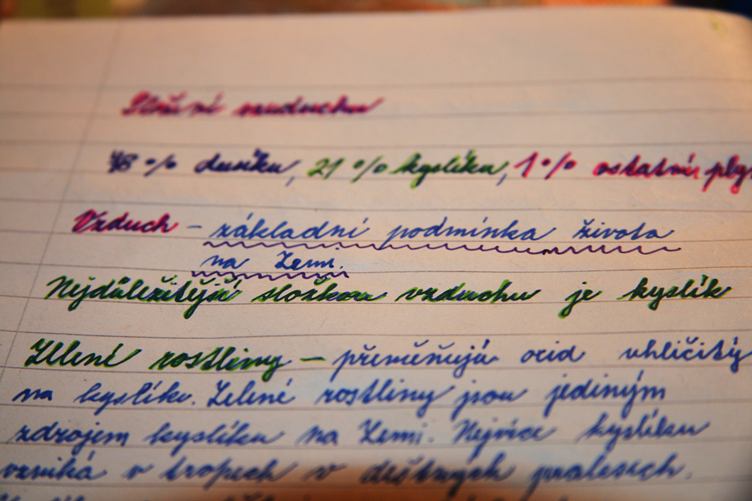 Složení vzduchu
78 % dusíku, 21 % kyslíku, 1 % ostatní plyn
Vzduch - základní podmínka života
na Zemi.
Nejdůležitější složkou vzduchu je kyslík
Zelené rostliny - přeměňují oxid uhličitý
na kyslík. Zelené rostliny jsou jediným
zdrojem kyslíku na Zemi. Nejvíce kyslíku
vzniká v tropech v deštných pralesích.